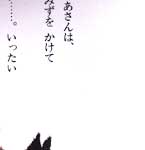 あさんは、
みずを かけて
……。いったい